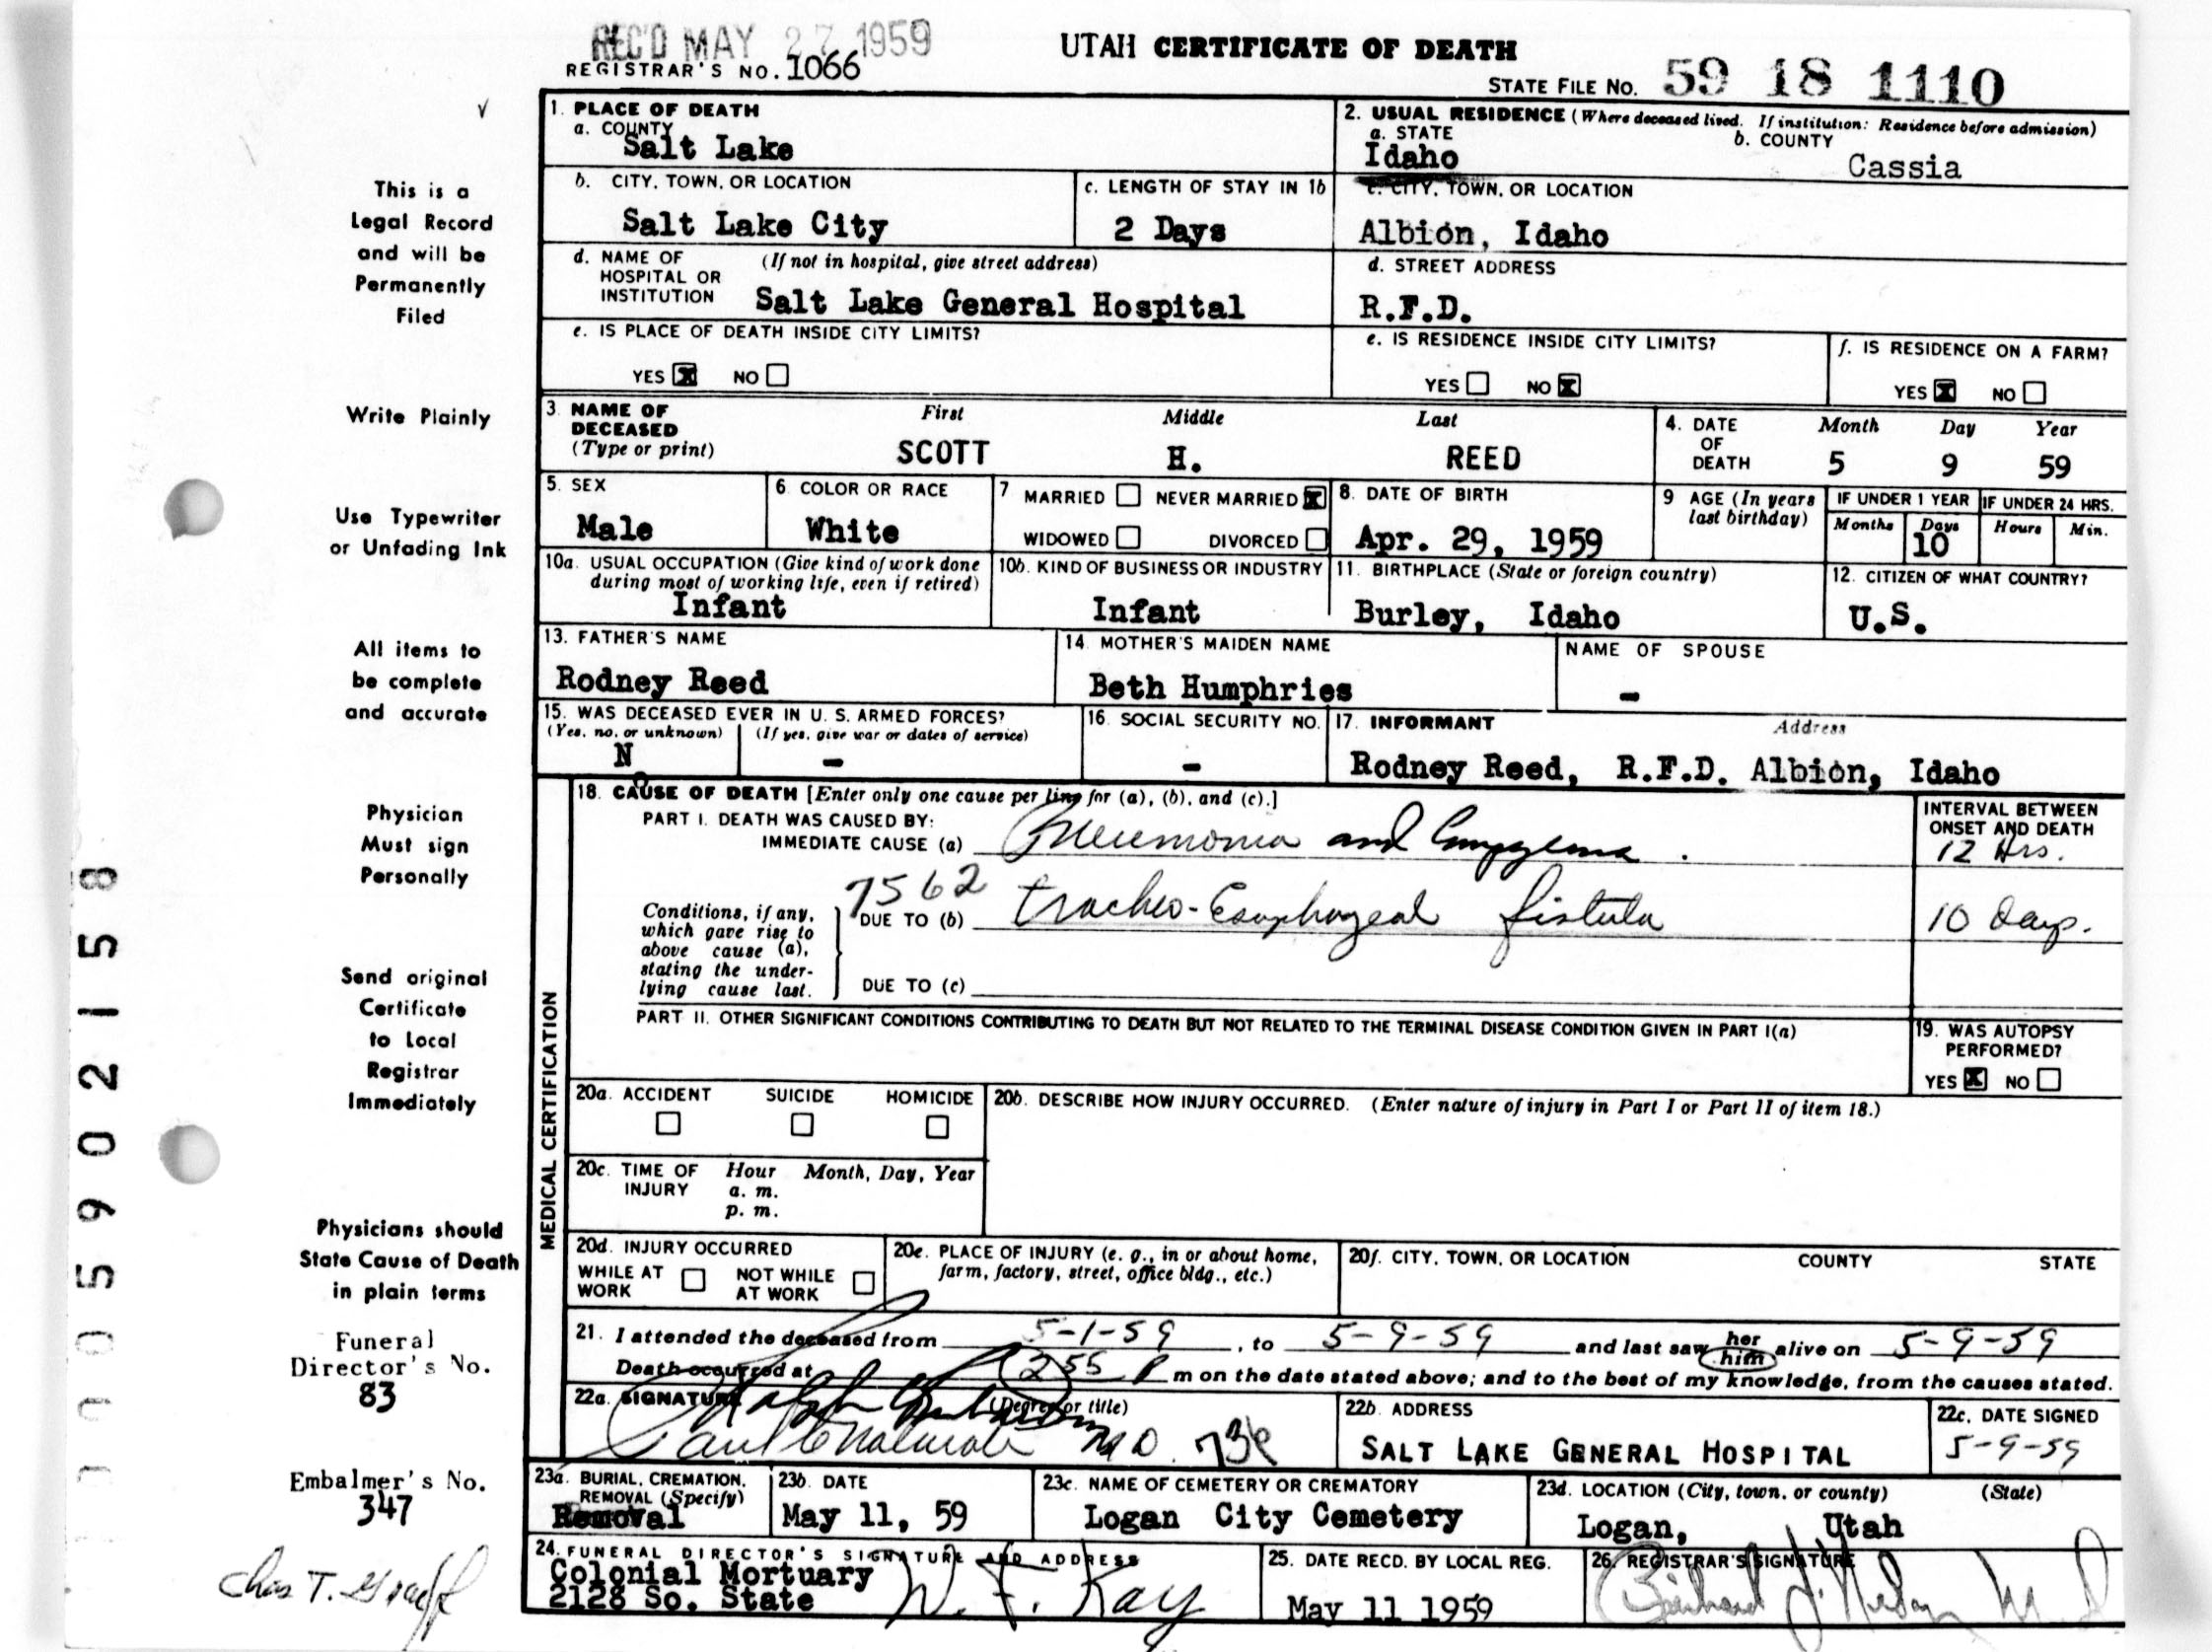 REC'D MAY 27 1959
UTAH CERTIFICATE OF DEATH
REGISTRAR'S NO. 1066
STATE FILE NO. 59 18 1110
This is a
Legal Record
and will be
Permanently
Filed
Write Plainly
Use Typewriter
or Unfading Ink
All items to
be complete
and accurate
Physician
Must sign
Personally
Send original
Certificate
to Local
Registrar
Immediately
Physicians should
State Cause of Death
in plain terms
Funeral
Director's No.
83
Embalmer's No.
347
Chas T.
1. PLACE OF DEATH
a. COUNTY
Salt Lake
2. USUAL RESIDENCE (Where deceased lived. If institution: Residence before admission)
a. STATE
Idaho
b. COUNTY
Cassia
b. CITY, TOWN, OR LOCATION
Salt Lake City
c. LENGTH OF STAY IN 1b
2 Days
c. CITY, TOWN, OR LOCATION
Albion, Idaho
d. NAME OF HOSPITAL OR INSTITUTION (If not in hospital, give street address)
Salt Lake General Hospital
d. STREET ADDRESS
R.F.D.
e. IS PLACE OF DEATH INSIDE CITY LIMITS?
YES X NO
e. IS RESIDENCE INSIDE CITY LIMITS?
YES NO X
f. IS RESIDENCE ON A FARM?
YES X NO
3. NAME OF DECEASED (Type or print)
First Middle Last
SCOTT H. REED
4. DATE OF DEATH
Month Day Year
5 9 59
5. SEX
Male
6. COLOR OR RACE
White
7 MARRIED NEVER MARRIED X
WIDOWED DIVORCED
8. DATE OF BIRTH
Apr. 29, 1959
9 AGE (In years last birthday)
IF UNDER 1 YEAR IF UNDER 24 HRS.
Months Days Hours Min.
10
10a. USUAL OCCUPATION (Give kind of work done during most of working life, even if retired)
Infant
10b. KIND OF BUSINESS OR INDUSTRY
Infant
11. BIRTHPLACE (State or foreign country)
Burley, Idaho
12. CITIZEN OF WHAT COUNTRY?
U.S.
13. FATHER'S NAME
Rodney Reed
14. MOTHER'S MAIDEN NAME
Beth Humphries
NAME OF SPOUSE
-
15. WAS DECEASED EVER IN U. S. ARMED FORCES?
(Yes, no, or unknown) (If yes, give war or dates of service)
No -
16. SOCIAL SECURITY NO.
-
17. INFORMANT Address
Rodney Reed, R.F.D. Albion, Idaho
MEDICAL CERTIFICATION
18. CAUSE OF DEATH [Enter only one cause per line for (a), (b), and (c).]
PART I. DEATH WAS CAUSED BY:
IMMEDIATE CAUSE (a) Pneumonia and Empyema.
INTERVAL BETWEEN
ONSET AND DEATH
12 Hrs.
Conditions, if any,
which gave rise to
above cause (a),
stating the under-
lying cause last.
7562
DUE TO (b) tracheo-Esophageal fistula
10 days.
DUE TO (c)
PART II. OTHER SIGNIFICANT CONDITIONS CONTRIBUTING TO DEATH BUT NOT RELATED TO THE TERMINAL DISEASE CONDITION GIVEN IN PART I(a)
19. WAS AUTOPSY PERFORMED?
YES X NO
20a. ACCIDENT SUICIDE HOMICIDE
20b. DESCRIBE HOW INJURY OCCURRED. (Enter nature of injury in Part I or Part II of item 18.)
20c. TIME OF INJURY Hour Month, Day, Year
a. m.
p. m.
20d. INJURY OCCURRED
WHILE AT WORK NOT WHILE AT WORK
20e. PLACE OF INJURY (e. g., in or about home, farm, factory, street, office bldg., etc.)
20f. CITY, TOWN, OR LOCATION COUNTY STATE
21. I attended the deceased from 5-1-59, to 5-9-59 and last saw her him alive on 5-9-59
Death occurred at 255 P m on the date stated above; and to the best of my knowledge, from the causes stated.
22a. SIGNATURE (Degree or title)
Ralph
Paul MD
22b. ADDRESS
SALT LAKE GENERAL HOSPITAL
22c. DATE SIGNED
5-9-59
23a. BURIAL, CREMATION, REMOVAL (Specify)
Removal
23b. DATE
May 11, 59
23c. NAME OF CEMETERY OR CREMATORY
Logan City Cemetery
23d. LOCATION (City, town, or county) (State)
Logan, Utah
24. FUNERAL DIRECTOR'S SIGNATURE AND ADDRESS
Colonial Mortuary
2128 So. State
W. F. Kay
25. DATE RECD. BY LOCAL REG.
May 11 1959
26. REGISTRAR'S SIGNATURE